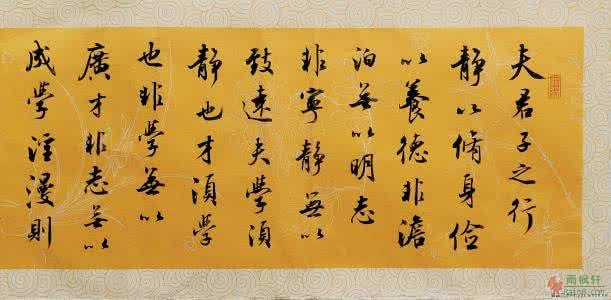 夫君子之行
靜以脩身儉
以養德非澹
泊無以明志
非寧靜無以
致遠夫學須
靜也才須學
也非學無以
廣才非志無以
成學淫漫則
雨枫轩